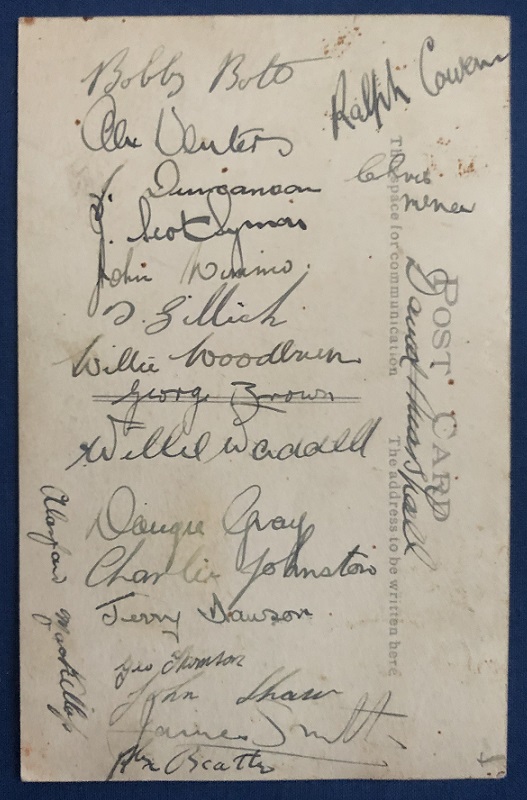 Bobby Bolt
Ralph Cowan
Alex Venters
J. Duncanson
Chris
McNee
J. Scot Symon
John Nimmo.
T. Gillick
Willie Woodburn
George Brown
Willie Waddell
David
Dougie Gray
Charlie Johnston
Jerry Dawson.
Geo Thomson
John Shaw
James Smith
Alex Beattie
POST CARD
This space for communication
The address to be written here